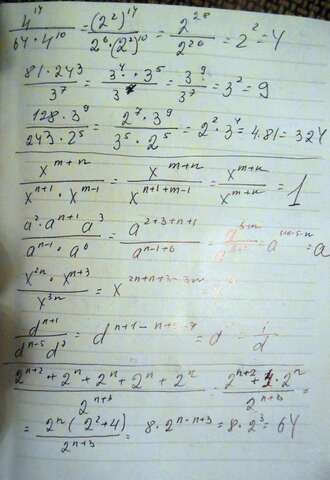 4^14 / 64·4^10 = (2^2)^14 / 2^6·(2^2)^10 = 2^28 / 2^26 = 2^2 = 4
81·243 / 3^7 = 3^4·3^5 / 3^7 = 3^9 / 3^7 = 3^2 = 9
128·3^9 / 243·2^5 = 2^7·3^9 / 3^5·2^5 = 2^2·3^4 = 4·81 = 324
x^(m+n) / x^(n+1)·x^(m-1) = x^(m+n) / x^(n+1+m-1) = x^(m+n) / x^(m+n) = 1
a^2·a^(n+1) a^3 / a^(n-1)·a^6 = a^(2+3+n+1) / a^(n-1+6) = = a
x^(2n)·x^(n+3) / x^(3n) = x^(2n+n+3-3n)
d^(n+1) / d^(n-5) d^7 = d^(n+1-n+5-7) = d = 1/d
2^(n+2) + 2^n + 2^n + 2^n + 2^n / 2^(n+3) = 2^(n+2) + 4·2^n / 2^(n+3) =
= 2^n (2^2+4) / 2^(n+3) = 8·2^(n-n+3) = 8·2^3 = 64